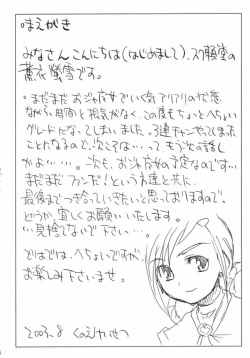 ◦まえがき
みなさんこんにちは(はじめまして)、スタ願堂の
薫衣螢雪です。
・まだまだおジャ魔女でいく気アリアリの状態
ながら、時間と根気がなく、この度もちょっとへちょい
グレードになってしまいました。3連チャンでしまった
ことなるので、次こそな…ってもう次の話し
かよ……。次も、おジャ魔女の予定なのです…
まだまだファンだ!という友達と共に、
最後までつき合っていきたいと思っておりますので!
どうか、宜しくお願いいたします。
…見捨てないで下さい…。
ではでは、へちょいですが、
お楽しみ下さいませ。
2003.8